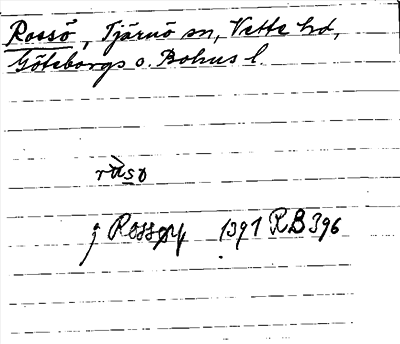 Rossö, Tjärnö sn, Vette hd,
Göteborgs o. Bohus l.
ràso
j Rossøy 1391 RB 396